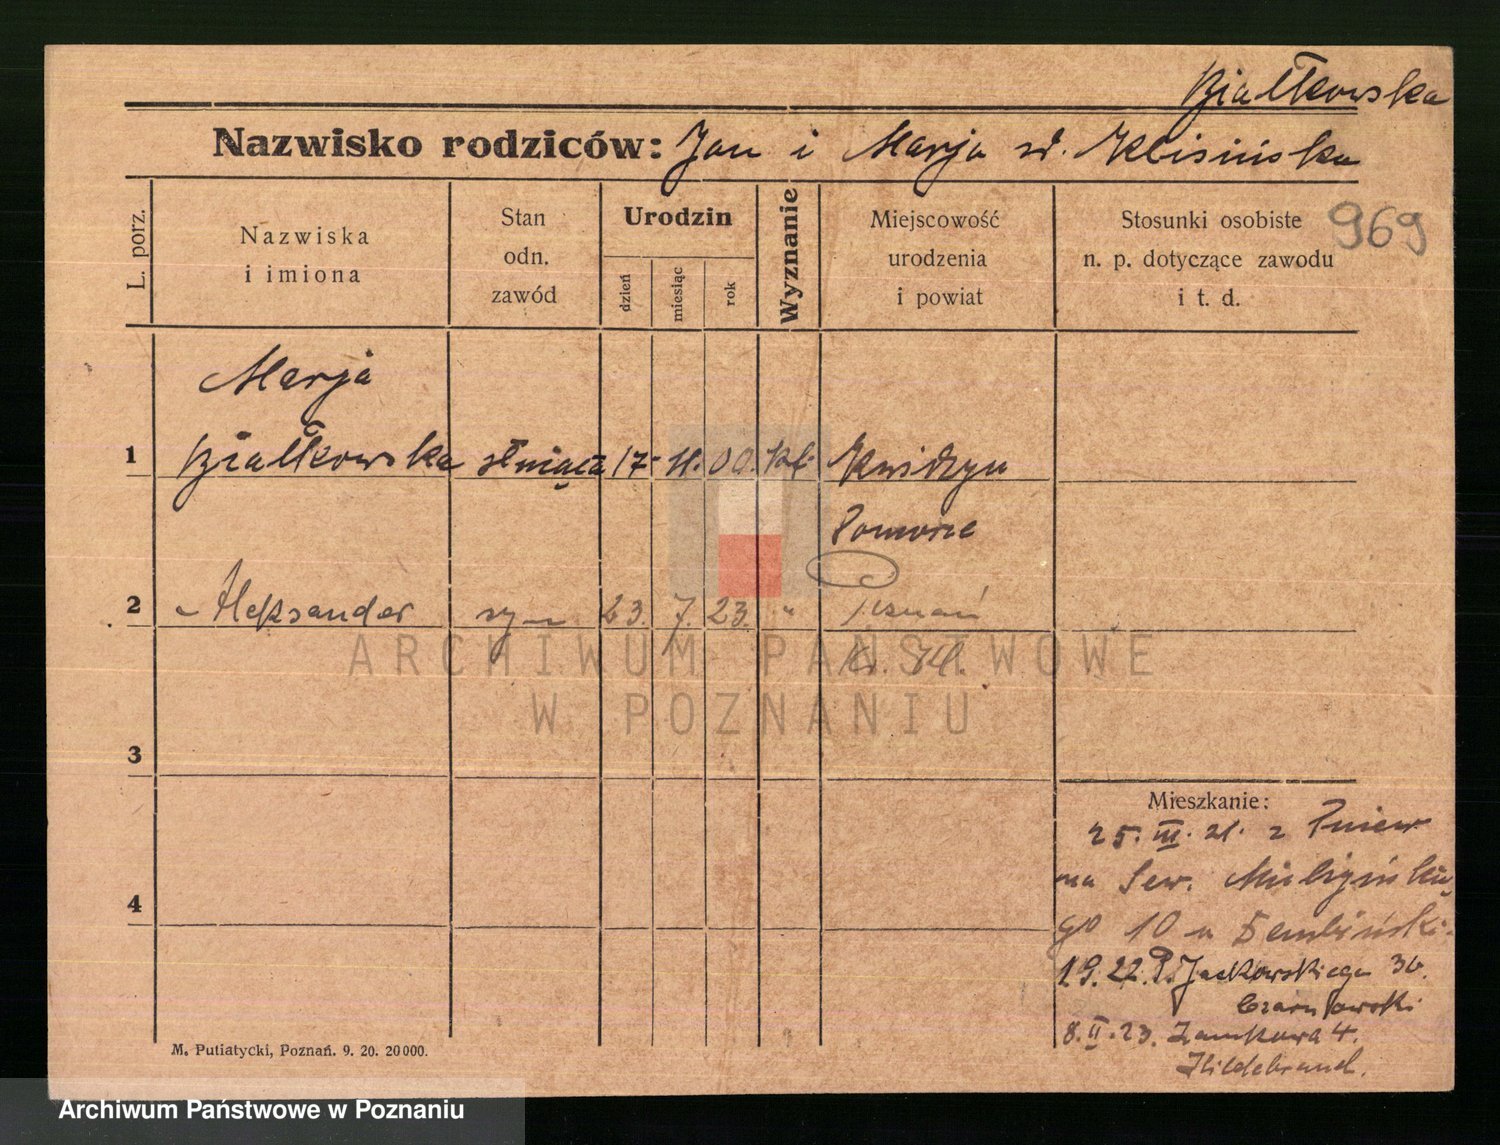 Białkowska
Nazwisko rodziców: Jan i Marja
969
L. porz.
Nazwiska
i imiona
Stan
odn.
zawód
Urodzin
dzień
miesiąc
rok
Wyznanie
Miejscowość
urodzenia
i powiat
Stosunki osobiste
n. p. dotyczące zawodu
i t. d.
Marja
1 Białkowska służąca 17. 11. 00. kt. Kwidzyn
Pomorze
2 Aleksander syn 23. 7. 23. " Poznań
3
4
Mieszkanie:
25. III. 21. z Pniew
na Sew. Mielżyńskie
go 10 u Dembiński.
19. 22. Jackowskiego 36.
Czarnkowski
8. II. 23. Zamkowa 4.
Hildebrand.
M. Putiatycki, Poznań. 9. 20. 20000.
ARCHIWUM PAŃSTWOWE
W POZNANIU
Archiwum Państwowe w Poznaniu